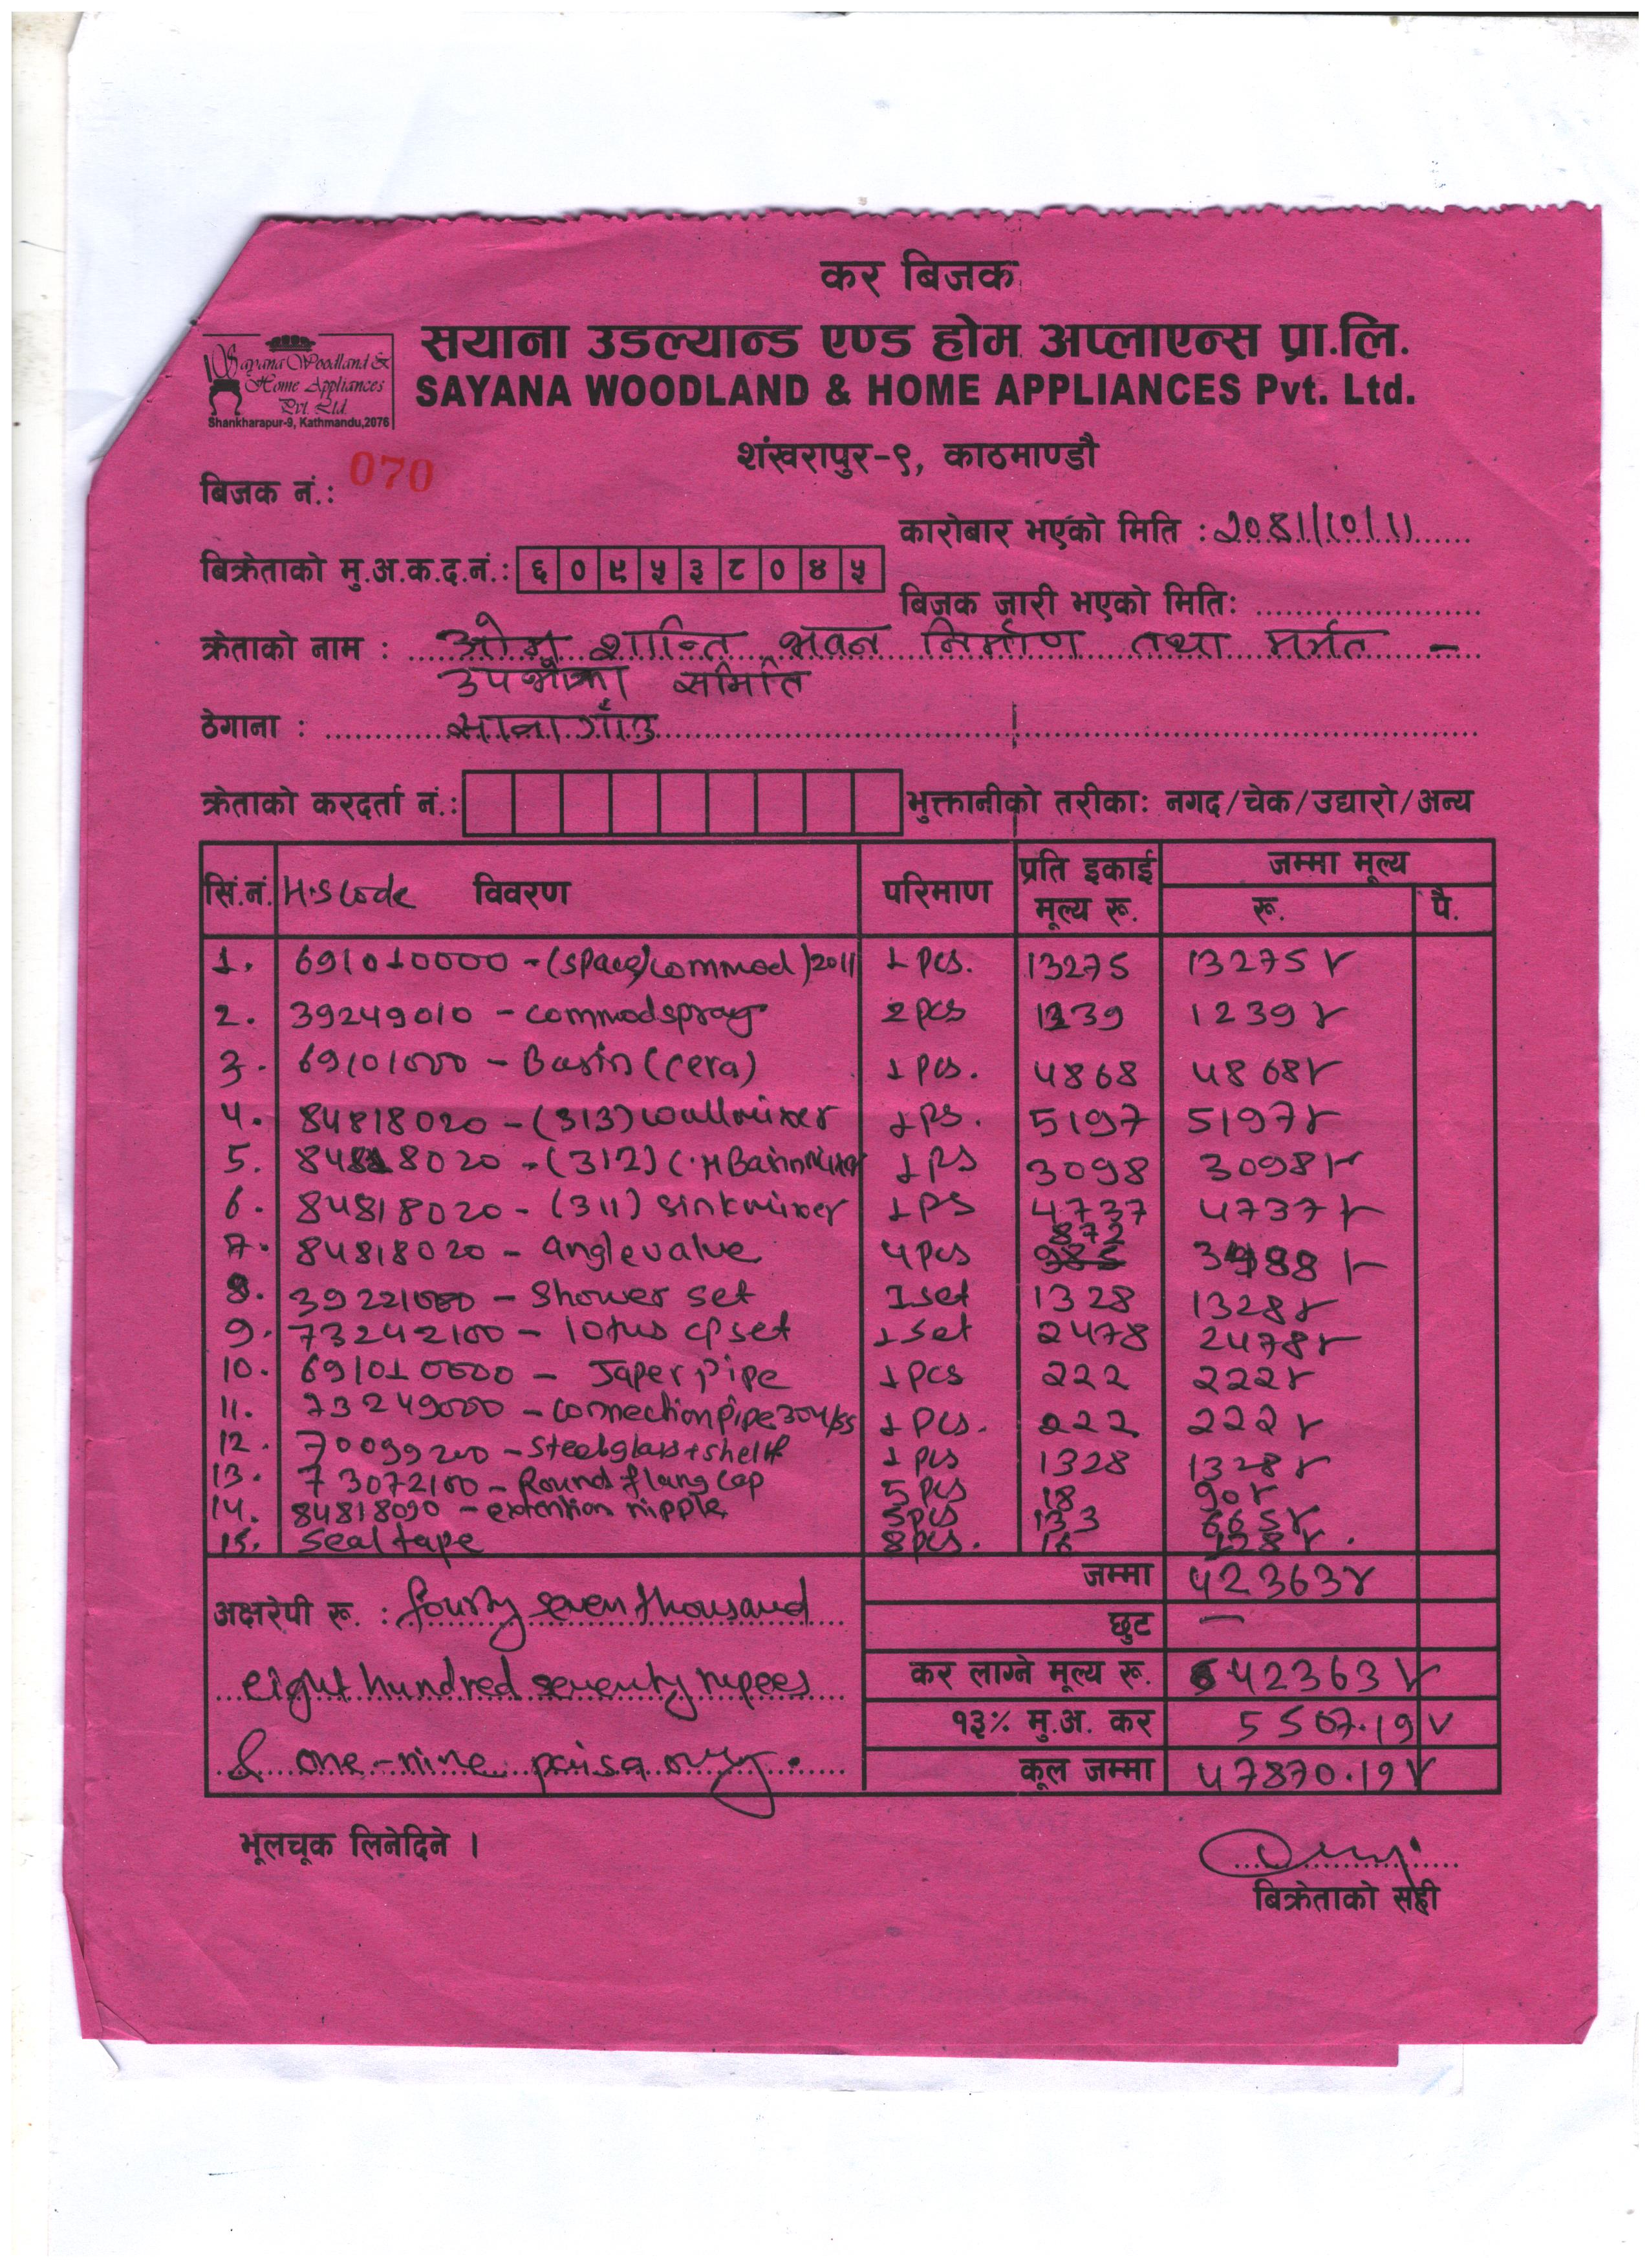 कर बिजक
Sayana Woodland &
Home Appliances
Pvt. Ltd.
Shankharapur-9, Kathmandu,2076
सयाना उडल्यान्ड एण्ड होम अप्लाएन्स प्रा.लि.
SAYANA WOODLAND & HOME APPLIANCES Pvt. Ltd.
शंखरापुर-९, काठमाण्डौ
बिजक नं.: 070
कारोबार भएको मिति : 2081/10/11
बिक्रेताको मु.अ.क.द.नं.: ६०९५३८०४५
बिजक जारी भएको मिति:
क्रेताको नाम : ओम शान्ति भवन निर्माण तथा मर्मत -
उपभोक्ता समिति
ठेगाना : सानागाँउ
क्रेताको करदर्ता नं.: भुक्तानीको तरीका: नगद/चेक/उद्यारो/अन्य
सिं.नं. H.S Code विवरण परिमाण प्रति इकाई मूल्य रू. जम्मा मूल्य रू. पै.
1. 691010000 - (space) commod) 2011 1 pcs. 13275 13275
2. 39249010 - commodspray 2 pcs 1239 1239
3. 69101000 - Basin (cera) 1 pcs. 4868 4868
4. 84818020 - (313) wallmixer 1 ps. 5197 5197
5. 84818020 - (312) C.H Basinmixer 1 ps 3098 3098
6. 84818020 - (311) sinkmixer 1 ps 4737 4737
7. 84818020 - anglevalve 4 pcs 872 3488
8. 39221000 - Shower set 1 set 1328 1328
9. 73242100 - lotus cp set 1 set 2478 2478
10. 691010000 - Japer pipe 1 pcs 222 222
11. 73249000 - connection pipe 304/ss 1 pcs. 222 222
12. 70099200 - Steelglass + shelf 1 pcs 1328 1328
13. 73072100 - Round flang cap 5 pcs 18 90
14. 84818090 - extention nipple 5 pcs 133 665
15. Seal tape 8 pcs. 16 128
जम्मा 42363
अक्षरेपी रू. : fourty seven thousand
छुट -
eight hundred seventy rupees
कर लाग्ने मूल्य रू. 42363
१३% मु.अ. कर 5507.19
& one-nine paisa only.
कूल जम्मा 47870.19
भूलचूक लिनेदिने ।
बिक्रेताको सही